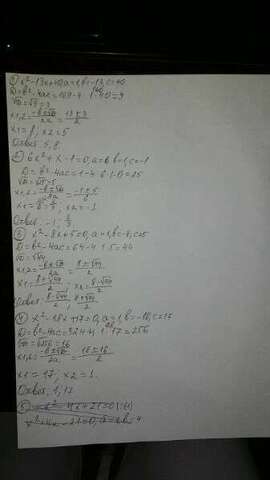 1) x²-13x+40, a=1, b=-13, c=40
D=b²-4ac=169-4·1·40=9
√D=√9=3
x1,2=-b±√D/2a=13±3/2
x1=8, x2=5
Ответ: 5, 8
2) 6x²+x-1=0, a=6 b=1, c=-1
D=b²-4ac=1-4·6·1·0=25
√D=√25=5
x1,2=-b±√D/2a=-1±5/2
3) x²-8x+5=0, a=1, b=-8, c=5
D=b²-4ac=64-4·1·5=44
√D=√44
x1,2=-b±√D/2a=8±√44/2
x1=8-√44/2; x2=8+√44/2
Ответ 8-√44/2; 8+√44/2
4) x²-18x+17=0, a=1, b=-18, c=17
D=b²-4ac=324-4·1·17=256
√D=√256=16
x1,2=-b±√D/2a=18±16/2
x1=17, x2=1.
Ответ: 1, 17